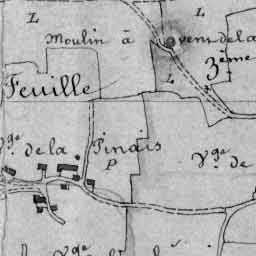 L L
Moulin à vens de la
3ème
L
Feuille
Vge de la Pinais
P
Vge de
Vge